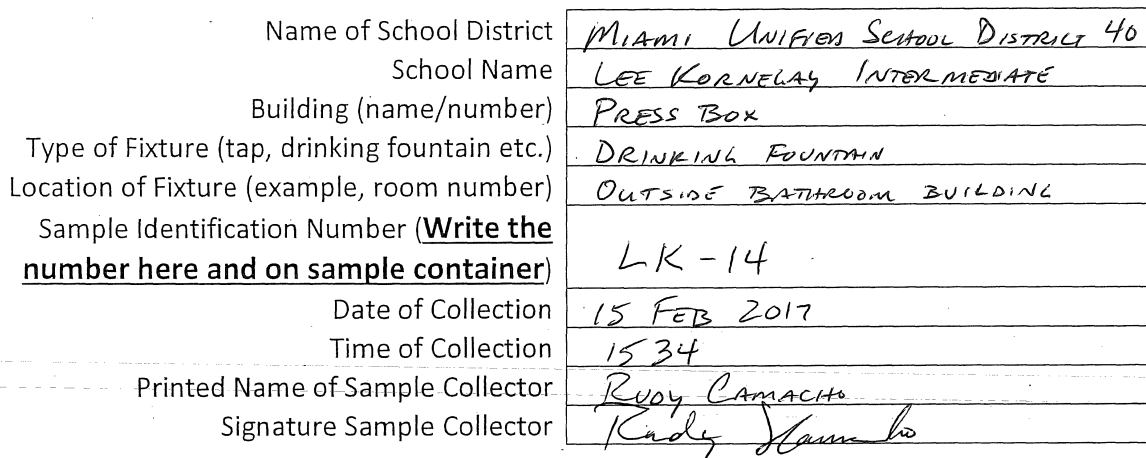 Name of School District MIAMI UNIFIED SCHOOL DISTRICT 40
School Name LEE KORNEGAY INTERMEDIATE
Building (name/number) PRESS BOX
Type of Fixture (tap, drinking fountain etc.) DRINKING FOUNTAIN
Location of Fixture (example, room number) OUTSIDE BATHROOM BUILDING
Sample Identification Number (Write the
number here and on sample container) LK-14
Date of Collection 15 FEB 2017
Time of Collection 1534
Printed Name of Sample Collector RUDY CAMACHO
Signature Sample Collector Rudy Camacho